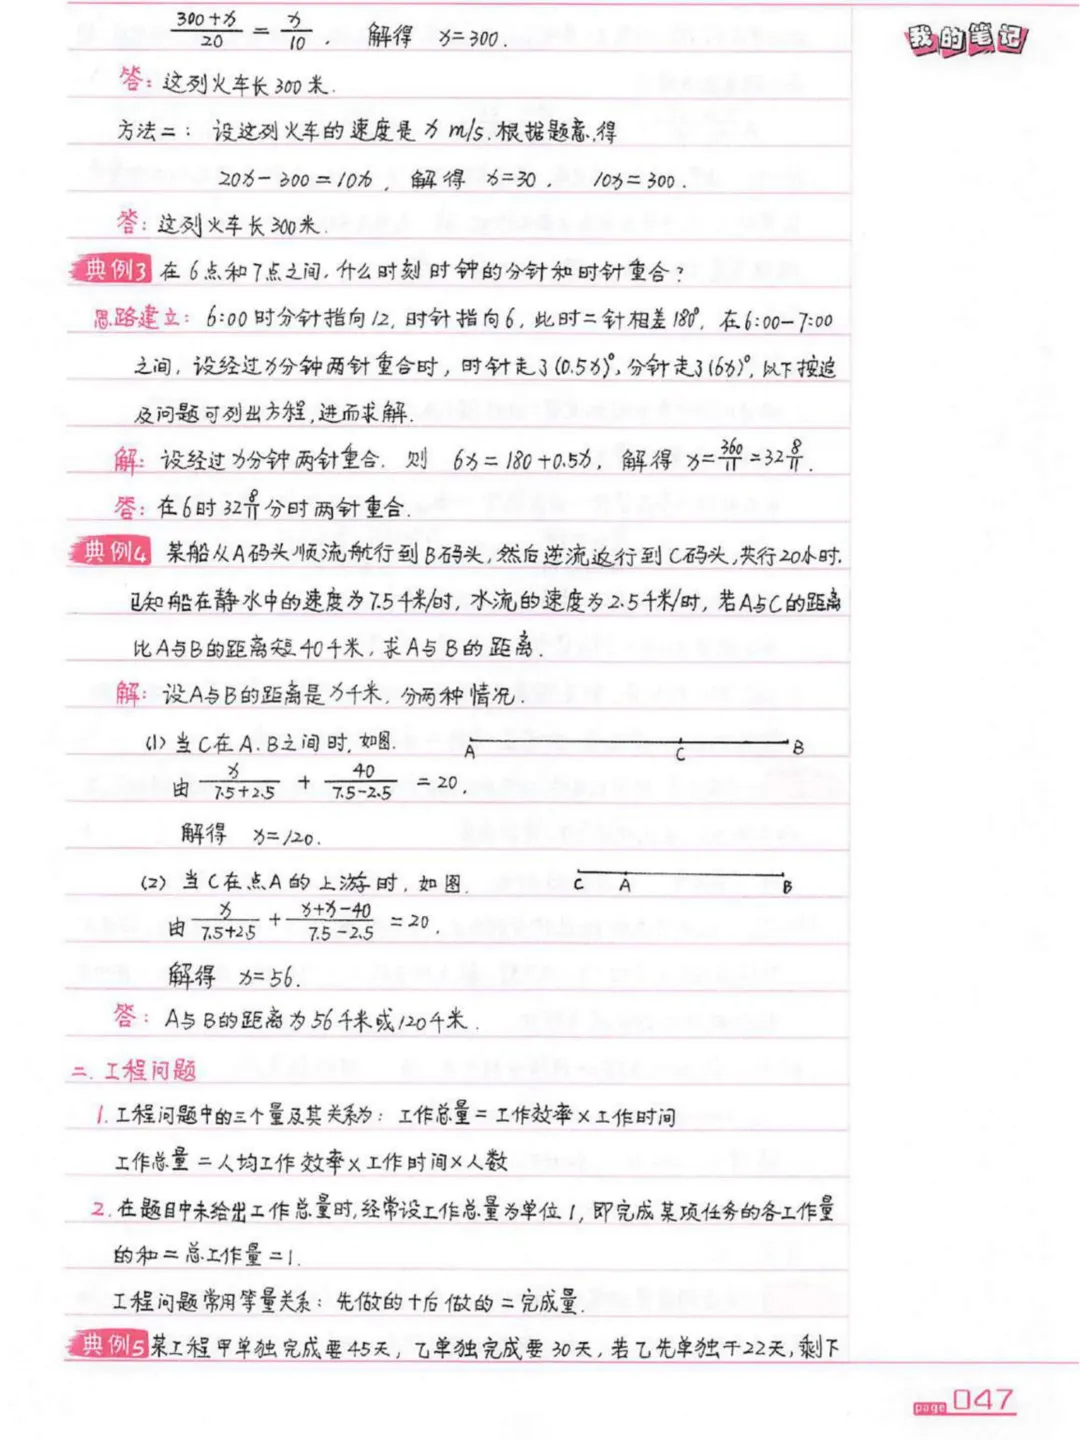 (300+x)/20 = x/10 . 解得 x=300.
我的笔记
答：这列火车长300米.
方法二：设这列火车的速度是 x m/s.根据题意,得
20x-300=10x , 解得 x=30 , 10x=300 .
答：这列火车长300米.
典例3 在6点和7点之间,什么时刻时钟的分针和时针重合?
思路建立：6:00时分针指向12,时针指向6,此时二针相差180°,在6:00-7:00
之间,设经过x分钟两针重合时,时针走了(0.5x)°,分针走了(6x)°,以下按追
及问题可列出方程,进而求解.
解：设经过x分钟两针重合. 则 6x=180+0.5x, 解得 x=360/11=32 8/11.
答：在6时32 8/11分时两针重合.
典例4 某船从A码头顺流航行到B码头,然后逆流返行到C码头,共行20小时.
已知船在静水中的速度为7.5千米/时,水流的速度为2.5千米/时,若A与C的距离
比A与B的距离短40千米,求A与B的距离.
解：设A与B的距离是x千米,分两种情况.
(1)当C在A.B之间时,如图. A C B
由 x/(7.5+2.5) + 40/(7.5-2.5) =20,
解得 x=120.
(2)当C在点A的上游时,如图. C A B
由 x/(7.5+2.5) + (x+x-40)/(7.5-2.5) =20,
解得 x=56.
答：A与B的距离为56千米或120千米.
二.工程问题
1.工程问题中的三个量及其关系为：工作总量=工作效率×工作时间
工作总量=人均工作效率×工作时间×人数
2.在题目中未给出工作总量时,经常设工作总量为单位1,即完成某项任务的各工作量
的和=总工作量=1.
工程问题常用等量关系：先做的+后做的=完成量.
典例5 某工程甲单独完成要45天,乙单独完成要30天,若乙先单独干22天,剩下
page 047